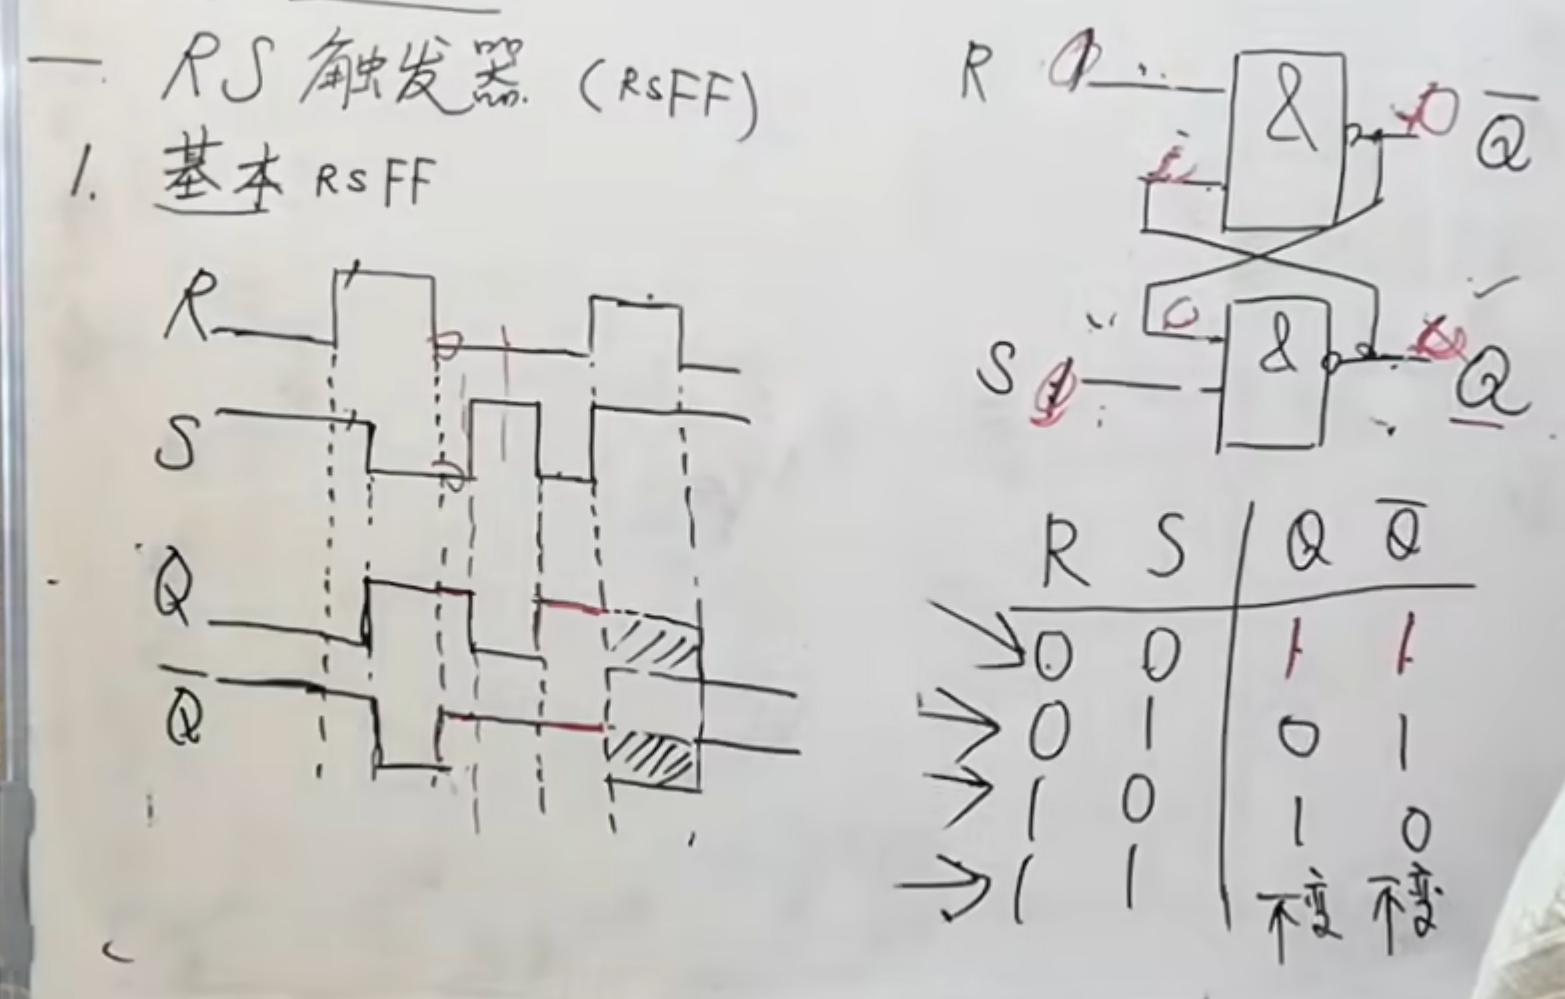 一 RS 触发器 (RSFF)
1. 基本 RSFF
R
S
Q
Q̅
R & 0 Q̅
1
0
S & Q
R S Q Q̅
0 0 1 1
0 1 0 1
1 0 1 0
1 1 不变 不变